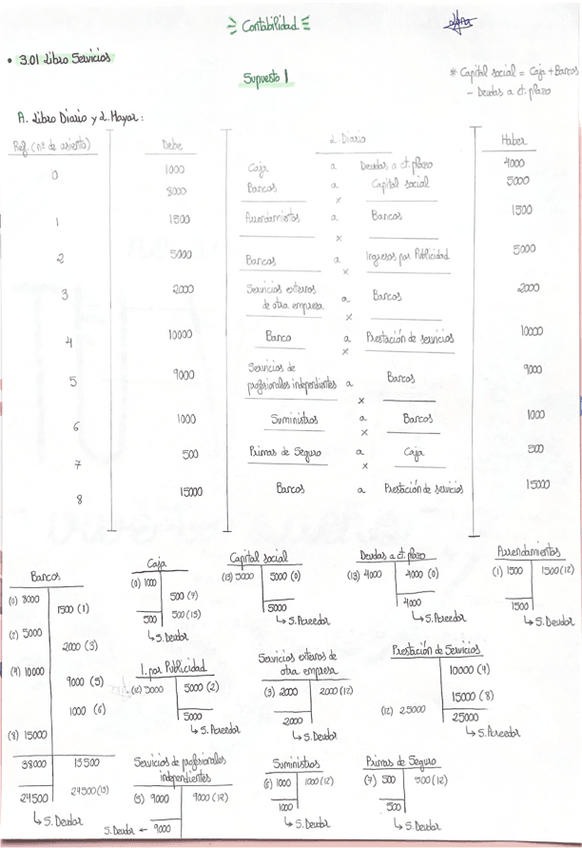 Contabilidad
• 3.01 Libro Servicios
Supuesto 1
* Capital social = Caja + Bancos
- Deudas a ct. plazo
A. Libro Diario y L. Mayor:
Ref. (nº de asiento) Debe L. Diario Haber
0 1000 Caja a Deudas a ct. plazo 4000
8000 Bancos a Capital social 5000
x
1 1500 Arrendamientos a Bancos 1500
x
2 5000 Bancos a Ingresos por Publicidad 5000
x
3 2000 Servicios externos
de otra empresa a Bancos 2000
x
4 10000 Banco a Prestación de servicios 10000
x
5 9000 Servicios de
profesionales independientes a Bancos 9000
x
6 1000 Suministros a Bancos 1000
x
7 500 Primas de Seguro a Caja 500
x
8 15000 Bancos a Prestación de servicios 15000
Bancos
(0) 8000
1500 (1)
(2) 5000
2000 (3)
(4) 10000
9000 (5)
1000 (6)
(8) 15000
38000 13500
24500 24500 (13)
↳ S. Deudor
Caja
(0) 1000
500 (7)
500 500 (13)
↳ S. Deudor
Capital social
(13) 5000 5000 (0)
5000
↳ S. Acreedor
Deudas a ct. plazo
(13) 4000 4000 (0)
4000
↳ S. Acreedor
Arrendamientos
(1) 1500 1500 (12)
1500
↳ S. Deudor
I. por Publicidad
(12) 5000 5000 (2)
5000
↳ S. Acreedor
Servicios externos de
otra empresa
(3) 2000 2000 (12)
2000
↳ S. Deudor
Prestación de Servicios
10000 (4)
15000 (8)
(12) 25000
25000
↳ S. Acreedor
Servicios de profesionales
independientes
(5) 9000 9000 (12)
S. Deudor ← 9000
Suministros
(6) 1000 1000 (12)
1000
↳ S. Deudor
Primas de Seguro
(7) 500 500 (12)
500
↳ S. Deudor